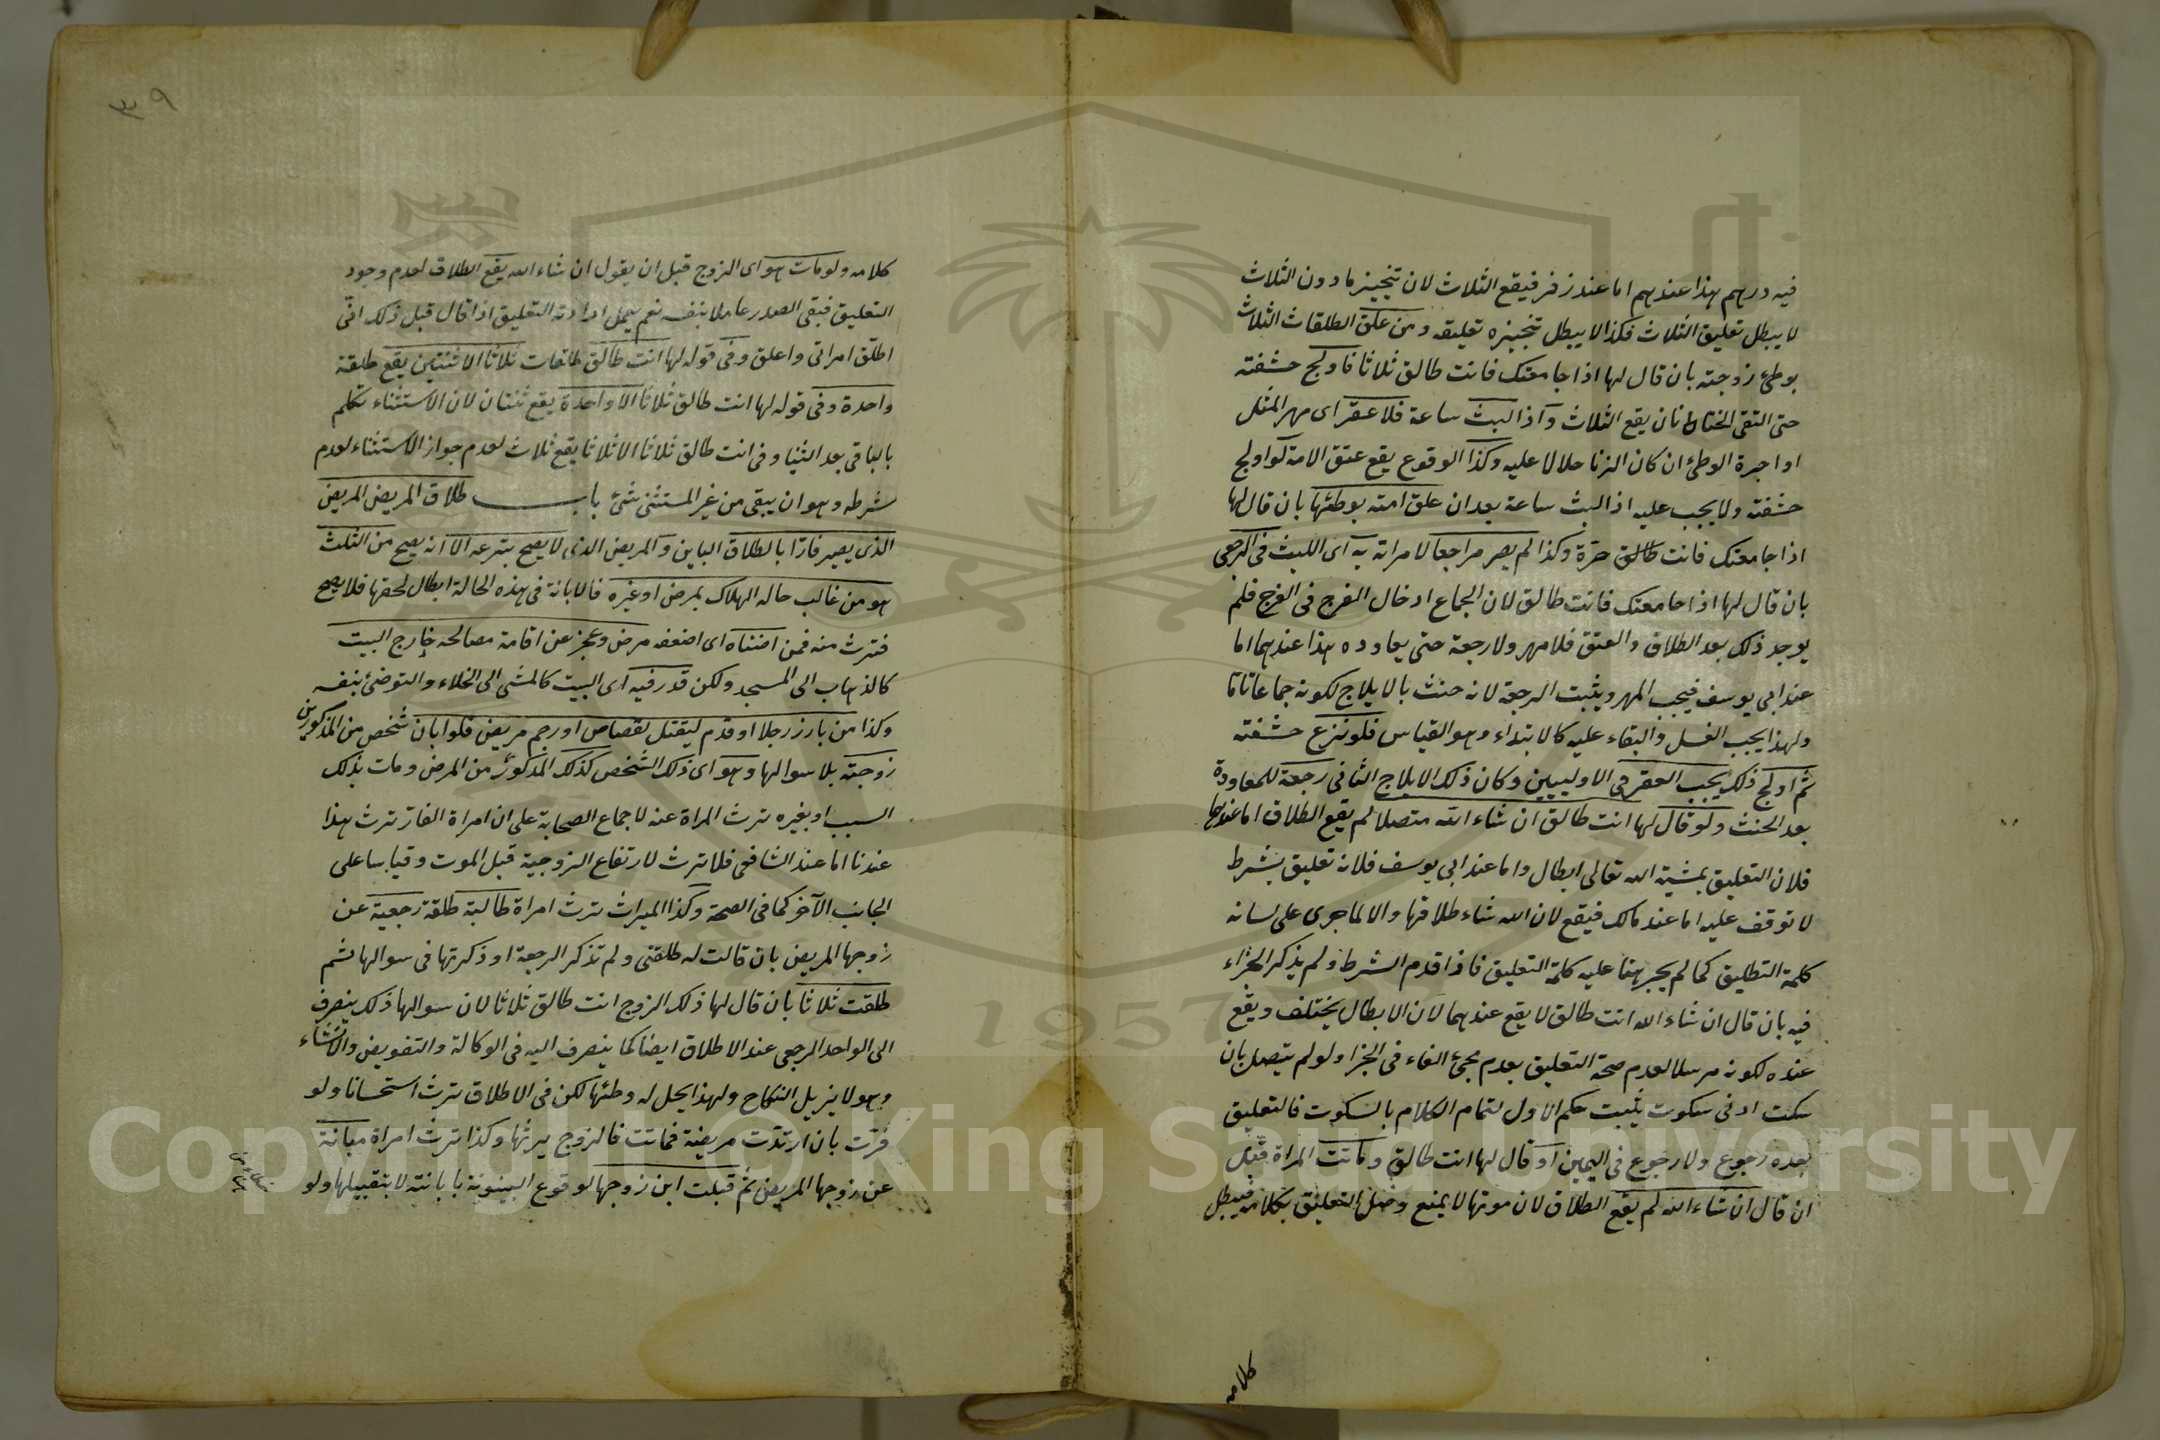 فيه درهم هذا عندهم اما عند زفر فيقع الثلاث لان تنجيز ما دون الثلاث
لا يبطل تعليق الثلاث فكذا لا يبطل تنجيزه تعليقه ومن علق الطلقات الثلاث
بوطئ زوجته بان قال لها اذا جامعتك فانت طالق ثلاثا فاولج حشفته
حتى التقى الختانان يقع الثلاث واذا لبث ساعة فلا عقر اى مهر المثل
او اجرة الوطئ ان كان الزنا حلالا عليه وكذا الوقوع يقع عتق الامة لو اولج
حشفته ولا يجب عليه اذا لبث ساعة بعد ان علق امته بوطئها بان قال لها
اذا جامعتك فانت طالق حرة وكذا لم يصر مراجعا لامراته به اى اللبث فى الرجعى
بان قال لها اذا جامعتك فانت طالق لان الجماع ادخال الفرج فى الفرج فلم
يوجد ذلك بعد الطلاق والعتق فلا مهر ولا رجعة حتى يعاوده هذا عندهما اما
عند ابى يوسف فيجب المهر ويثبت الرجعة لانه حنث بالايلاج لكونه جماعا تاما
ولهذا يجب الغسل والبقاء عليه كالابتداء وهو القياس فلو نزع حشفته
ثم اولج ذلك يجب العقر فى الاوليين وكان ذلك الايلاج الثانى رجعة للمعاودة
بعد الحنث ولو قال لها انت طالق ان شاء الله متصلا لم يقع الطلاق اما عندهما
فلان التعليق بمشية الله تعالى ابطال واما عند ابى يوسف فلانه تعليق بشرط
لا توقف عليه اما عند مالك فيقع لان الله شاء طلاقها والا لما جرى على لسانه
كلمة التطليق كما لم يجر ههنا عليه كلمة التعليق فاذا قدم الشرط ولم يذكر الجزاء
فيه بان قال ان شاء الله انت طالق لا يقع عندهما لان الابطال يختلف ويقع
عنده لكونه مرسلا لعدم صحة التعليق بعدم مجئ الفاء فى الجزا ولو لم يتصل بان
سكت ادنى سكوت يثبت حكم الاول لتمام الكلام بالسكوت فالتعليق
بعده رجوع ولا رجوع فى اليمين او قال لها انت طالق وماتت المراة قبل
ان قال ان شاء الله لم يقع الطلاق لان موتها لا يمنع وصل التعليق بكلامه فيبطل
كلامه
٣٩
كلامه ولو مات هو اى الزوج قبل ان يقول ان شاء الله يقع الطلاق لعدم وجود
التعليق فبقى الصدر عاملا بنفسه نعم يعمل ارادته التعليق اذا قال قبل ذلك انى
اطلق امراتى واعلق وفى قوله لها انت طالق طلقات ثلاثا الا ثنتين يقع طلقة
واحدة وفى قوله لها انت طالق ثلاثا الا واحدة يقع ثنتان لان الاستثناء تكلم
بالباقى بعد الثنيا وفى انت طالق ثلاثا الا ثلاثا يقع ثلاث لعدم جواز الاستثناء لعدم
شرطه وهو ان يبقى من غير المستثنى شئ باب طلاق المريض المريض
الذى يصير فارا بالطلاق الباين والمريض الذى لا يصح تبرعه الا انه يصح من الثلث
هو من غالب حاله الهلاك بمرض او غيره فالابانة فى هذه الحالة ابطال لحقها فلا يصح
فترث منه فمن اضناه اى اضعفه مرض وعجز عن اقامة مصالحه خارج البيت
كالذهاب الى المسجد ولكن قدر فيه اى البيت كالمشى الى الخلاء والتوضئ بنفسه
وكذا من بارز رجلا او قدم ليقتل لقصاص او رجم مريض فلو ابان شخص من المذكورين
زوجته بلا سوالها وهو اى ذلك الشخص كذلك المذكور من المرض ومات بذلك
السبب او بغيره ترث المراة عنه لاجماع الصحابة على ان امراة الفار ترث هذا
عندنا اما عند الشافعى فلا ترث لارتفاع الزوجية قبل الموت وقياسا على
الجانب الآخر كما فى الصحة وكذا الميراث ترث امراة طالبة طلقة رجعية عن
زوجها المريض بان قالت له طلقنى ولم تذكر الرجعة او ذكرتها فى سوالها ثم
طلقت ثلاثا بان قال لها ذلك الزوج انت طالق ثلاثا لان سوالها ذلك ينصرف
الى الواحد الرجعى عند الاطلاق ايضا كما ينصرف اليه فى الوكالة والتفويض والانشاء
وهو لا يزيل النكاح ولهذا يحل له وطئها لكن فى الاطلاق ترث استحسانا ولو
فرت بان ارتدت مريضة فماتت فالزوج يرثها وكذا ترث امراة مبانة
عن زوجها المريض ثم قبلت ابن زوجها لوقوع البينونة بابانته لا بتقبيلها ولو
1957
Copyright © King Saud University